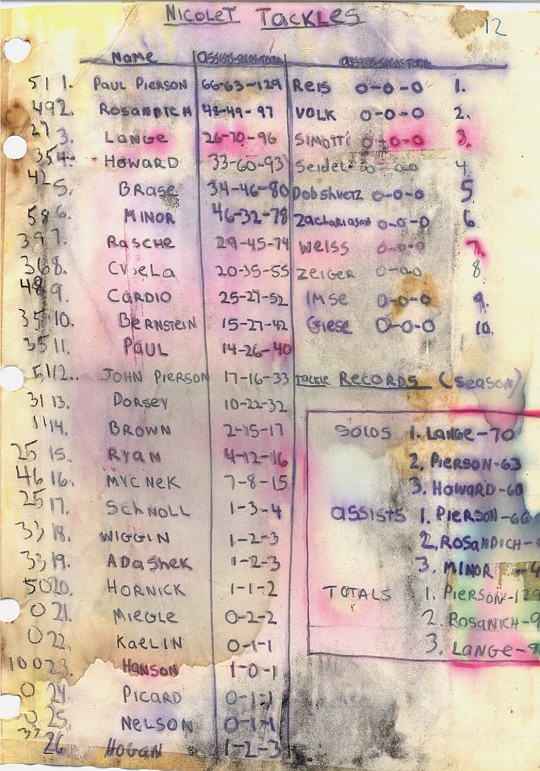 NICOLET TACKLES
12
NAME ASSISTS-SOLOS-TOTAL ASSISTS-SOLOS-TOTAL
51 1. PAUL PIERSON 66-63-129 REIS 0-0-0 1.
49 2. ROSANDICH 48-49-97 VOLK 0-0-0 2.
27 3. LANGE 26-70-96 SIMOTTI 0-0-0 3.
35 4. HOWARD 33-60-93 Seidel 0-0-0 4
42 5. BRASE 34-46-80 Dobshuetz 0-0-0 5
58 6. MINOR 46-32-78 Zachariason 0-0-0 6
39 7. RASCHE 29-45-74 WEISS 0-0-0 7.
36 8. CVSELA 20-35-55 ZEIGER 0-0-0 8
48 9. CARDIO 25-27-52 IMSE 0-0-0 9.
35 10. BERNSTEIN 15-27-42 Giese 0-0-0 10.
35 11. PAUL 14-26-40
51 12. JOHN PIERSON 17-16-33 TACKLE RECORDS (SEASON)
31 13. DORSEY 10-22-32
11 14. BROWN 2-15-17 SOLOS 1. LANGE-70
25 15. RYAN 4-12-16 2. PIERSON-63
46 16. MYCNEK 7-8-15 3. HOWARD-60
25 17. SCHNOLL 1-3-4 ASSISTS 1. PIERSON-66
33 18. WIGGIN 1-2-3 2. ROSANDICH-
33 19. ADASHEK 1-2-3 3. MINOR -4
50 20. HORNICK 1-1-2 TOTALS 1. PIERSON-129
0 21. MIEGLE 0-2-2 2. ROSANICH-9
0 22. KAELIN 0-1-1 3. LANGE-9
100 23. HANSON 1-0-1
0 24. PICARD 0-1-1
0 25. NELSON 0-1-1
33 26 HOGAN 1-2-3